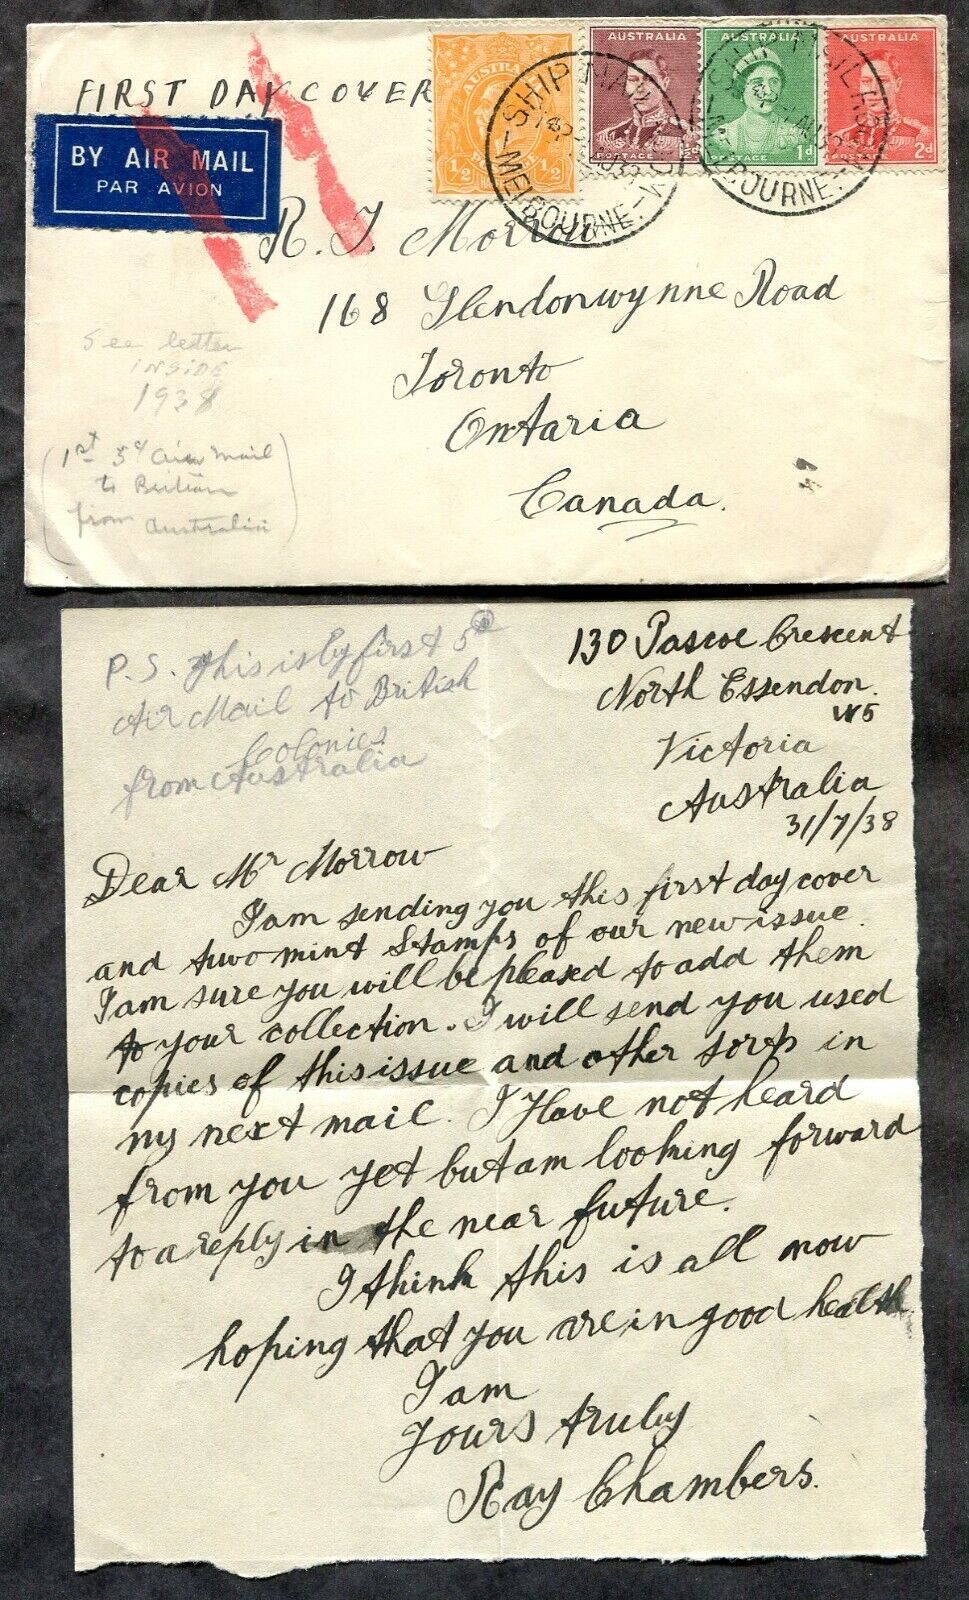 FIRST DAY COVER
BY AIR MAIL
PAR AVION
AUSTRALIA
POSTAGE
1/2 1/2
AUSTRALIA
POSTAGE
AUSTRALIA
POSTAGE 1d
AUSTRALIA
2d
SHIP MAIL
MELBOURNE
MELBOURNE
R. J. Morrow
168 Glendonwynne Road
Toronto
Ontario
Canada.
See letter
INSIDE
1938
(1st 5d air mail
to Britian
from Australia)
P.S. This is by first 5d
Air Mail to British
Colonies
from Australia
130 Pascoe Crescent
North Essendon.
W5
Victoria
Australia
31/7/38
Dear Mr Morrow
I am sending you this first day cover
and two mint stamps of our new issue.
I am sure you will be pleased to add them
to your collection. I will send you used
copies of this issue and other sorts in
my next mail. I Have not heard
from you yet but am looking forward
to a reply in the near future.
I think this is all now
hoping that you are in good health
I am
Yours truly
Ray Chambers.